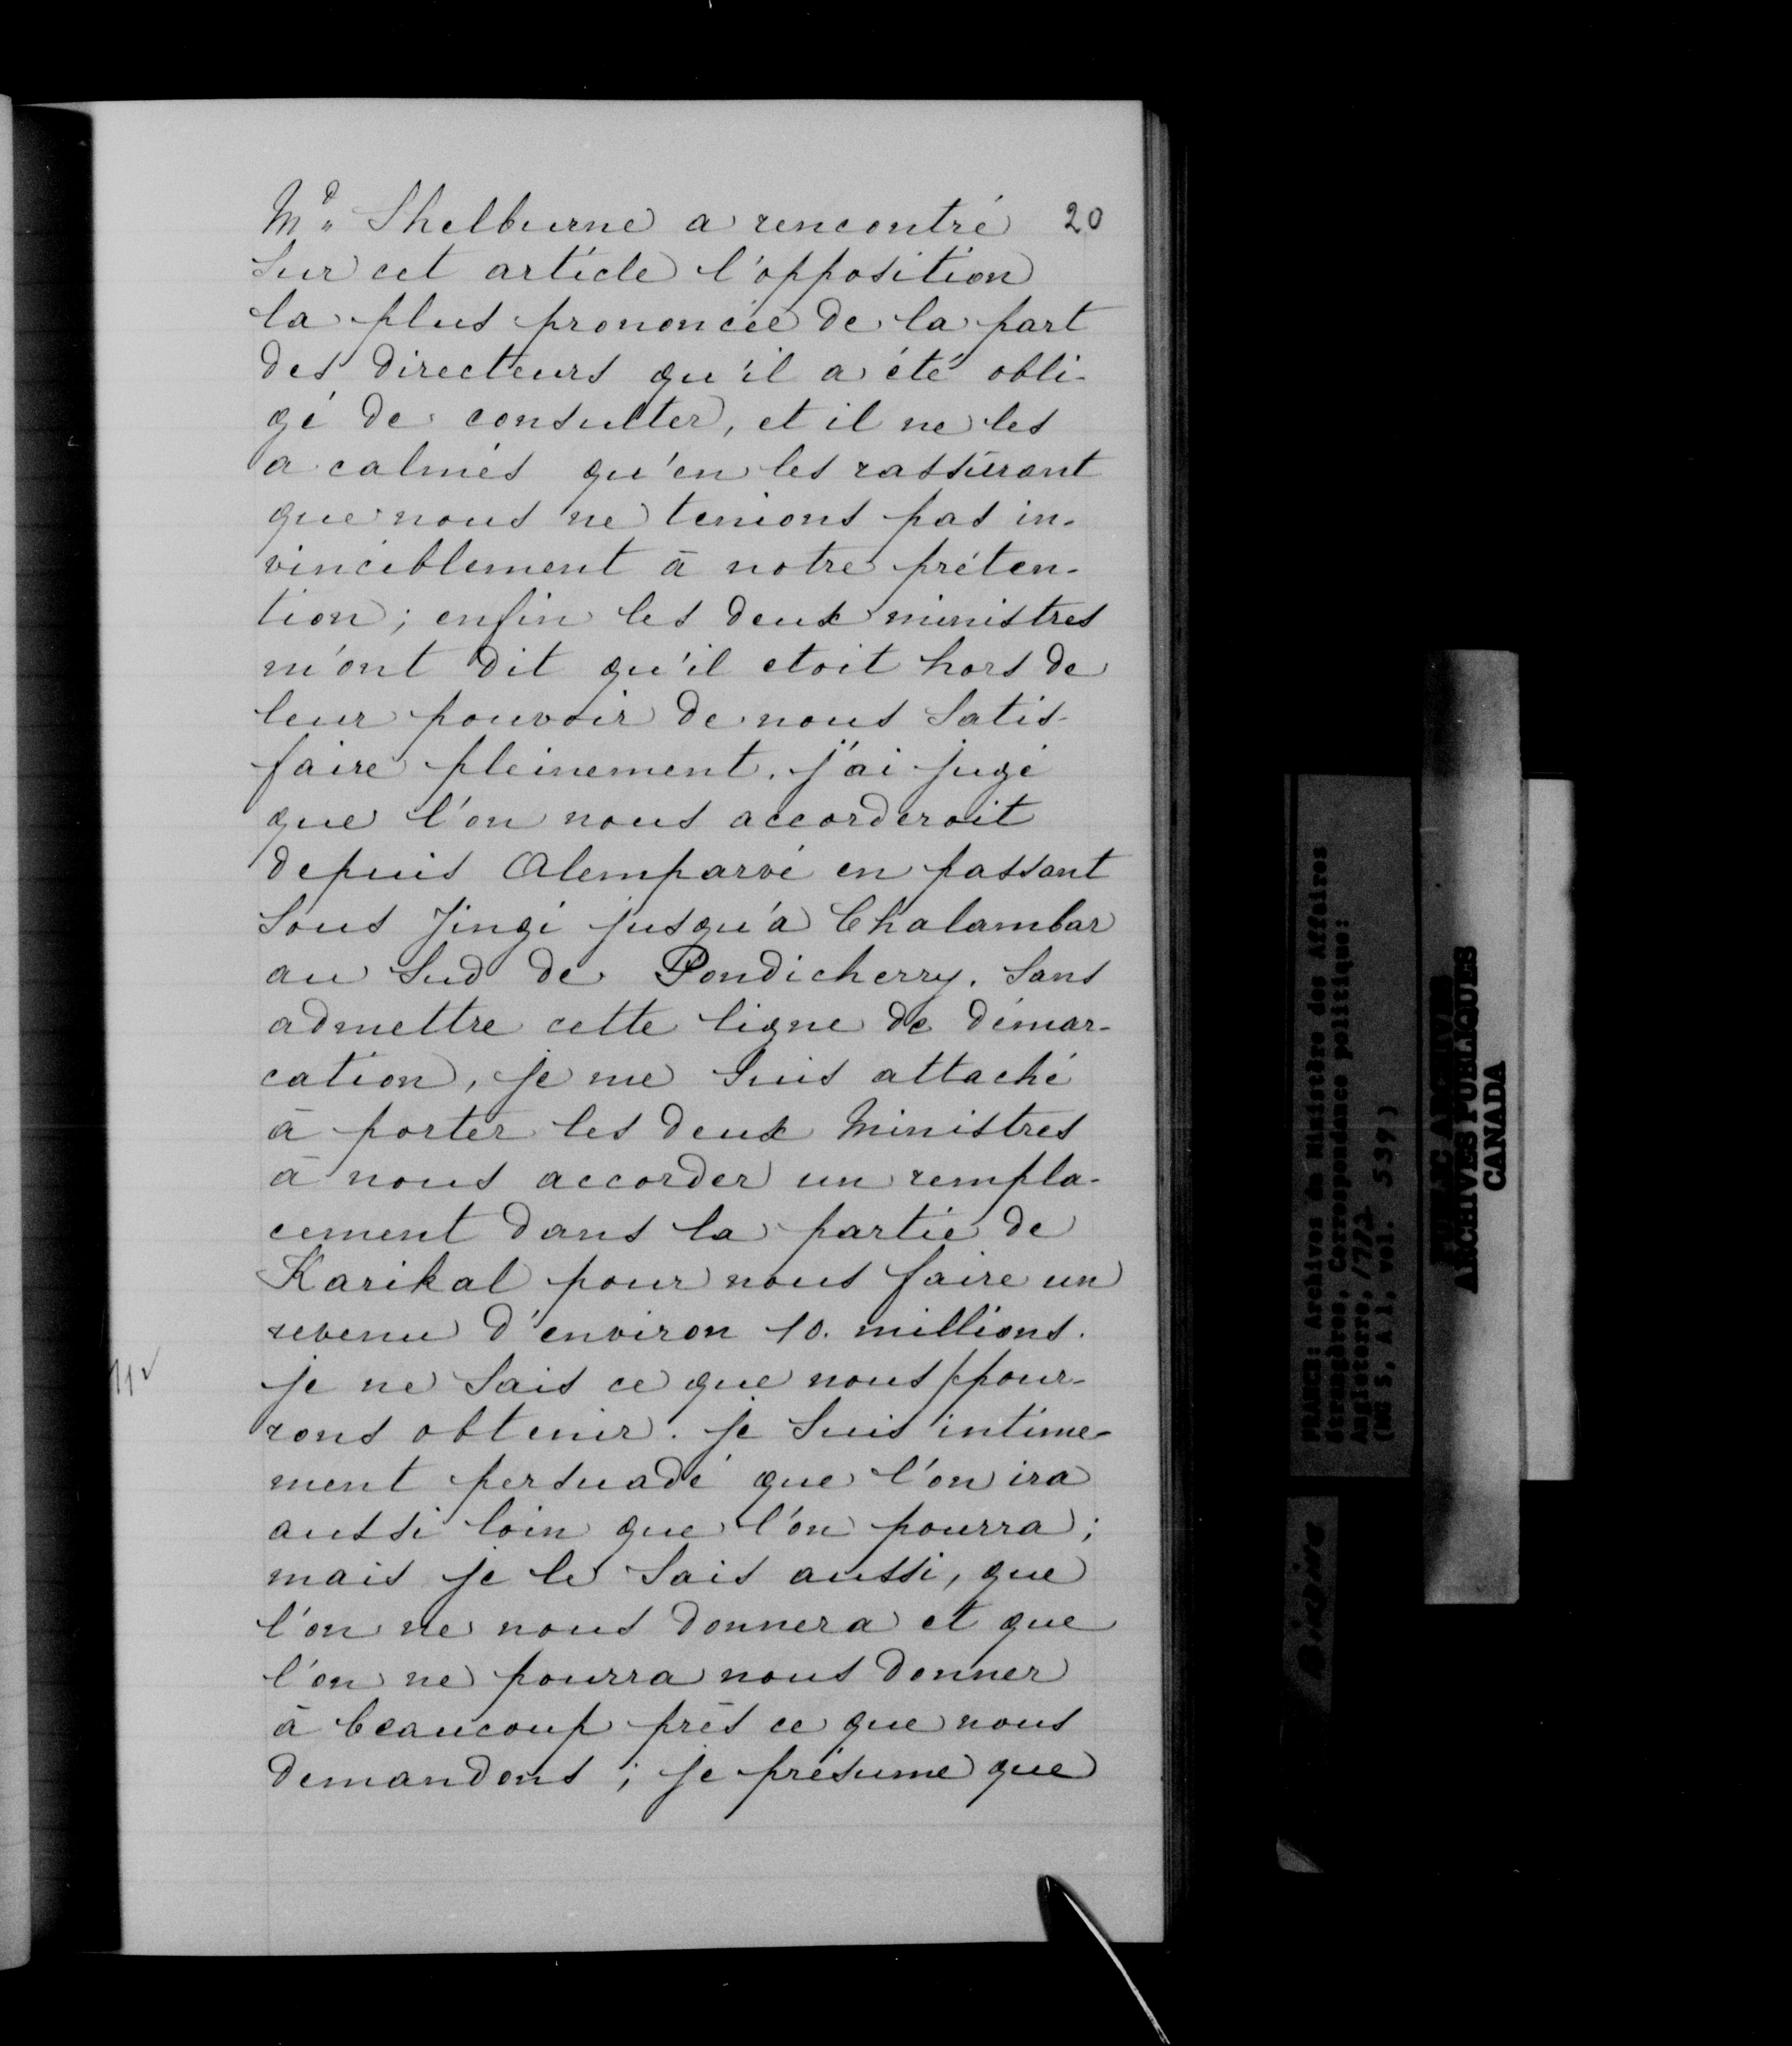 Md. Shelburne a rencontré 20
sur cet article l'opposition
la plus prononcée de la part
des directeurs qu'il a été obli-
gé de consulter, et il ne les
a calmés qu'en les rassûrant
que nous ne tenions pas in-
vinciblement à notre préten-
tion; enfin les deux ministres
m'ont dit qu'il etoit hors de
leur pouvoir de nous satis-
faire pleinement. j'ai jugé
que l'on nous accorderoit
depuis Alemparvé en passant
sous Jingi jusqu'à Chalambar
au sud de Pondicherry. sans
admettre cette ligne de démar-
cation, je me suis attaché
à porter les deux Ministres
à nous accorder un rempla-
cement dans la partie de
Karikal pour nous faire un
revenu d'environ 10. millions.
je ne sais ce que nous pour-
rons obtenir. je suis intime-
ment persuadé que l'on ira
aussi loin que l'on pourra;
mais je le sais aussi, que
l'on ne nous donnera et que
l'on ne pourra nous donner
à beaucoup près ce que nous
demandons; je présume que
FRANCE: Archives du Ministère des Affaires
Étrangères, Correspondance politique:
Angleterre, 1782
(MG 5, A 1, vol. 539)
PUBLIC ARCHIVES
ARCHIVES PUBLIQUES
CANADA